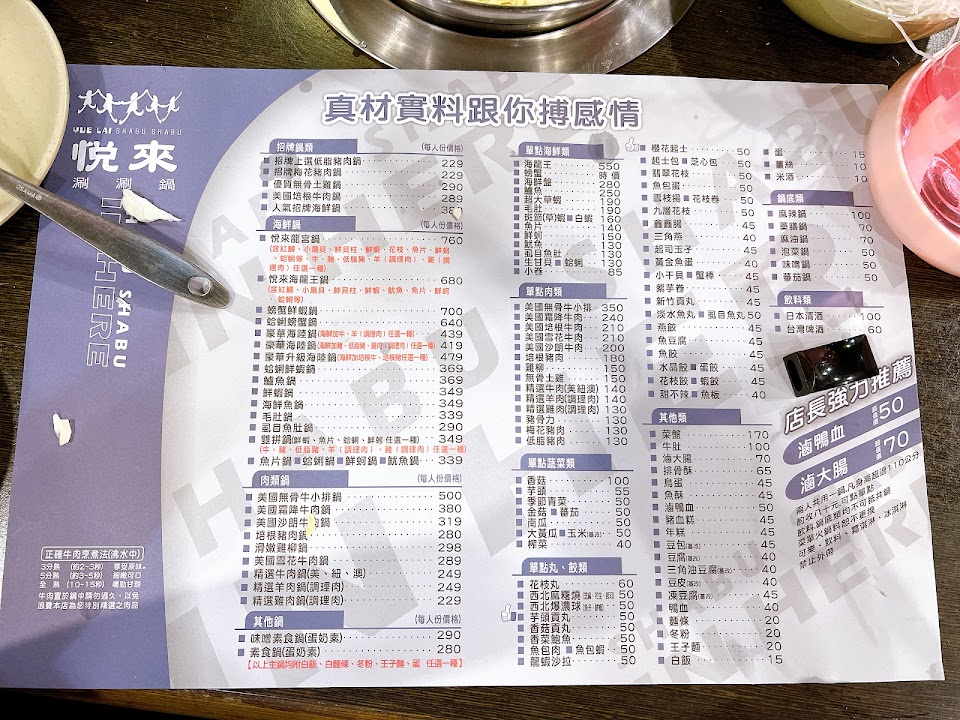 YUE LAI SHABU SHABU
悅來
涮涮鍋
真材實料跟你搏感情
招牌鍋類 (每人份價格)
招牌上選低脂豬肉鍋 229
招牌梅花豬肉鍋 229
優質無骨土雞鍋 290
美國培根牛肉鍋 289
人氣招牌海鮮鍋
海鮮鍋 (每人份價格)
悅來龍宮鍋 760
悅來海龍王鍋 680
螃蟹鮮蝦鍋 700
蛤蜊螃蟹鍋 640
豪華海陸鍋(海鮮加牛、羊(調理肉)任選一種) 439
豪華海陸鍋(海鮮加豬、低脂豬、雞肉(調理肉)任選一種) 419
豪華升級海陸鍋(海鮮加培根牛、培根豬任選一種) 479
蛤蜊鮮蝦鍋 369
鱸魚鍋 369
鮮蝦鍋 349
海鮮魚鍋 349
毛肚鍋 339
虱目魚肚鍋 290
雙拼鍋(鮮蝦、魚片、蛤蜊、鮮蚵 任選二種) 349
(牛、豬、低脂豬、羊(調理肉)、雞(調理肉)任選一種)
魚片鍋 蛤蜊鍋 鮮蚵鍋 魷魚鍋 339
肉類鍋 (每人份價格)
美國無骨牛小排鍋 500
美國霜降牛肉鍋 380
美國沙朗牛肉鍋 319
培根豬肉鍋 280
滑嫩雞柳鍋 298
美國雪花牛肉鍋 289
精選牛肉鍋(美、紐、澳) 249
精選羊肉鍋(調理肉) 249
精選雞肉鍋(調理肉) 229
其他鍋 (每人份價格)
味噌素食鍋(蛋奶素) 290
素食鍋(蛋奶素) 280
【以上主鍋均附白飯、白麵條、冬粉、王子麵、蛋 任選一種】
正確牛肉烹煮法(沸水中)
3分熟 (約2~3秒) 享受原味。
5分熟 (約3~5秒) 細嫩可口
全 熟 (10~15秒) 嚼勁甘甜
牛肉置於鍋中請勿過久、以免
浪費本店為您特別精選之肉品
單點海鮮類
海龍王 550
螃蟹 時價
海鮮盤 280
鱸魚 250
超大草蝦 190
毛肚 190
斑節(草)蝦 白蝦 160
魚片 140
鮮蚵 150
魷魚 130
虱目魚肚 130
生甘貝 蛤蜊 130
小卷 85
單點肉類
美國無骨牛小排 350
美國霜降牛肉 240
美國培根牛肉 210
美國雪花牛肉 210
美國沙朗牛肉 200
培根豬肉 180
雞柳 150
無骨土雞 150
精選牛肉(美紐澳) 140
精選羊肉(調理肉) 140
精選雞肉(調理肉) 130
豬骨力 130
梅花豬肉 130
低脂豬肉 130
單點蔬菜類
香菇 100
芋頭 55
季節青菜 50
金菇 蕃茄 50
南瓜 50
大黃瓜 玉米(基改) 50
榨菜 40
單點丸、餃類
花枝丸 60
西北麻糬燒 50
西北爆濃球 50
芋頭貢丸 50
香菇貢丸 50
香菜鮑魚 50
魚包肉 魚包蝦 50
龍蝦沙拉 50
櫻花起士 50
起士包 芝心包 50
翡翠花枝 50
魚包蛋 50
雪枝揚 花枝卷 50
九層花枝 50
鑫鑫腸 45
三角燕 40
起司玉子 45
黃金魚蛋 40
小干貝 蟹棒 45
紫芋卷 45
新竹貢丸 45
淡水魚丸 虱目魚丸 50
燕餃 45
魚豆腐 45
魚餃 45
水晶餃 蛋餃 45
花枝餃 蝦餃 45
甜不辣 魚板 40
其他類
菜盤 170
牛肚 100
滷大腸 70
排骨酥 65
鳥蛋 45
魚酥 45
滷鴨血 50
豬血糕 45
年糕 45
豆包(基改) 45
豆腐(基改) 45
三角油豆腐(基改) 45
豆皮(基改) 45
凍豆腐(基改) 45
鴨血 40
麵條 20
冬粉 20
王子麵 20
白飯 15
蛋 15
薑絲 15
米酒 10
鍋底類
麻辣鍋 100
藥膳鍋 70
麻油鍋 70
泡菜鍋 50
味噌鍋 50
蕃茄鍋 50
飲料類
日本清酒 100
台灣啤酒 60
店長強力推薦
滷鴨血 50
滷大腸 70